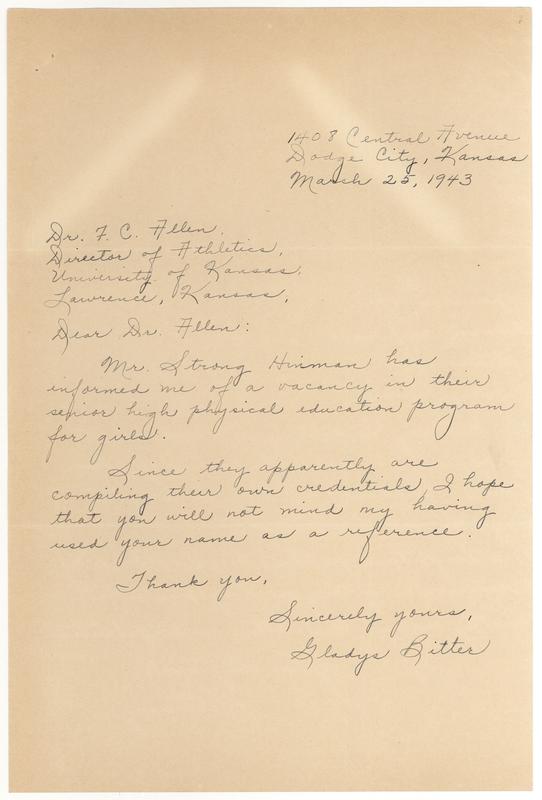 1408 Central Avenue
Dodge City, Kansas
March 25, 1943
Dr. F. C. Allen.
Director of Athletics,
University of Kansas,
Lawrence, Kansas,
Dear Dr. Allen:
Mr. Strong Hinman has
informed me of a vacancy in their
senior high physical education program
for girls.
Since they apparently are
compiling their own credentials, I hope
that you will not mind my having
used your name as a reference.
Thank you,
Sincerely yours,
Gladys Bitter